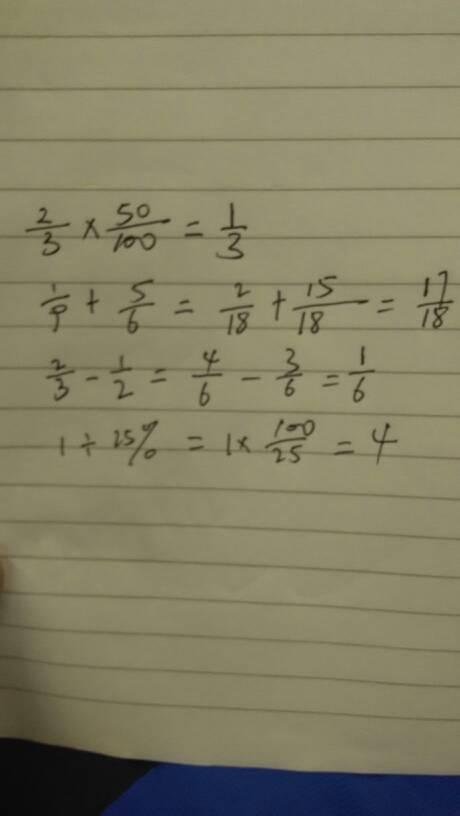 2/3 × 50/100 = 1/3
1/9 + 5/6 = 2/18 + 15/18 = 17/18
2/3 - 1/2 = 4/6 - 3/6 = 1/6
1 ÷ 25% = 1 × 100/25 = 4